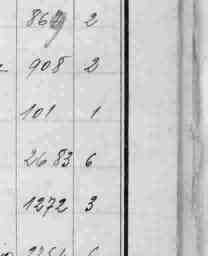 908 2
101 1
2683 6
1272 3